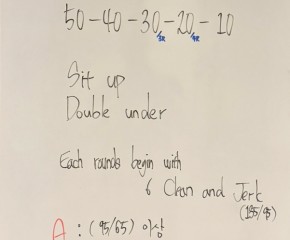 50-40-30-20-10
Sit up
Double under
Each rounds begin with
6 Clean and Jerk
(135/95)
A : (95/65) 이상